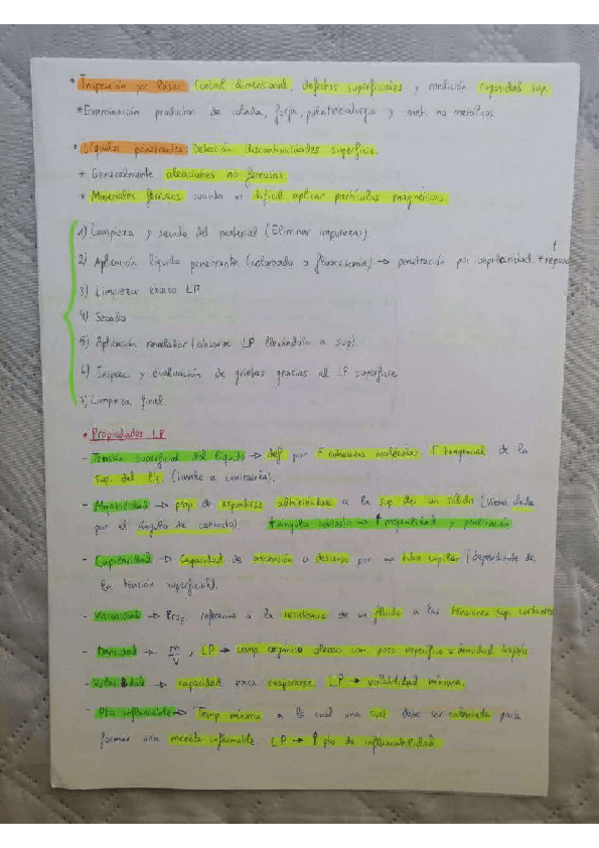 • Inspección por láser: Control dimensional, defectos superficiales y medición rugosidad sup.
*Examinación productos de colada, forja, pulvimetalurgia y mat. no metálicos
• Líquidos penetrantes: Detección discontinuidades superficie.
* Generalmente aleaciones no ferrosas.
* Materiales ferrosos cuando es difícil aplicar partículas magnéticas.
1) Limpieza y secado del material (Eliminar impurezas)
2) Aplicación líquido penetrante (coloreado o fluorescente) → penetración por capilaridad. + t reposo
3) Limpieza exceso LP
4) Secado
5) Aplicación revelador (absorbe LP llevándolo a sup).
6) Inspec. y evaluación de grietas gracias al LP superficie
7) Limpieza final.
• Propiedades LP
- Tensión superficial del líquido → def por F cohesivas moleculas. F tangencial de la
sup. del líq. (tiende a contraerla).
- Mojabilidad → prop de expandirse adhiriéndose a la sup de un sólido (Viene dada
por el ángulo de contacto). ↑ángulo contacto → ↑ mojabilidad y penetración
- Capilaridad → Capacidad de ascensión o descenso por un tubo capilar (dependiente de
la tensión superficial).
- Viscosidad → Prop. referente a la resistencia de un fluido a las tensiones sup. cortantes
- Densidad → m/V, LP → comp. orgánico oleoso con peso específico = densidad baja/a.
- Volatilidad → capacidad para evaporarse. LP → volatilidad mínima.
- Pto inflamable → Temp mínima a la cual una sust debe ser calentada para
formar una mezcla inflamable. LP → ↑ pto de inflamabilidad.